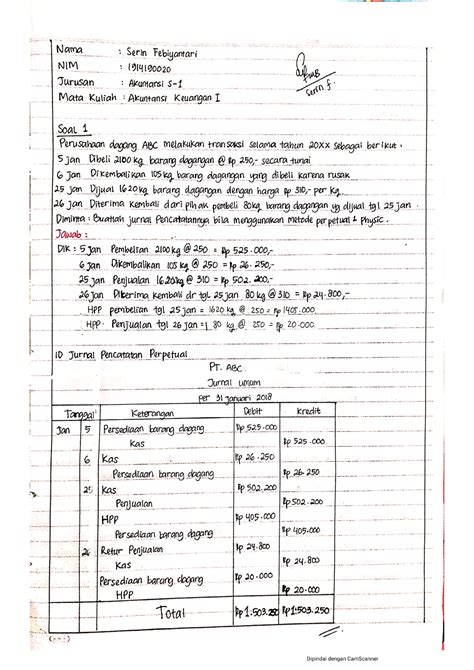 Nama : Serin Febiyantari
NIM : 1914190020
Jurusan : Akuntansi S-1
Mata Kuliah : Akuntansi Keuangan I
Serin f.
Soal 1
Perusahaan dagang ABC melakukan transaksi selama tahun 20XX sebagai berikut.
5 Jan Dibeli 2100 kg barang dagangan @ Rp 250,- secara tunai
6 Jan Dikembalikan 105 kg barang dagangan yang dibeli karena rusak
25 Jan Dijual 1620 kg barang dagangan dengan harga Rp 310,- per Kg
26 Jan Diterima kembali dari pihak pembeli 80kg barang dagangan yg dijual tgl 25 jan.
Diminta : Buatlah jurnal Pencatatannya bila menggunakan metode perpetual & Physic.
Jawab :
DIK : 5 Jan Pembelian 2100 kg @ 250 = Rp 525.000,-
6 Jan Dikembalikan 105 kg @ 250 = Rp 26.250,-
25 Jan Penjualan 1620kg @ 310 = Rp 502.200,-
26 Jan Diterima kembali dr tgl 25 jan 80 kg @ 310 = Rp 24.800,-
HPP pembelian tgl 25 jan = 1620 kg @ 250 = Rp 1405.000
HPP Penjualan tgl 26 jan = 80 kg @ 250 = Rp 20.000
1) Jurnal Pencatatan Perpetual
PT. ABC
Jurnal umum
per 31 Januari 2018
Tanggal Keterangan Debit Kredit
Jan 5 Persediaan barang dagang Rp 525.000
Kas Rp 525.000
6 Kas Rp 26.250
Persediaan barang dagang Rp 26.250
25 Kas Rp 502.200
Penjualan Rp 502.200
HPP Rp 405.000
Persediaan barang dagang Rp 405.000
26 Retur Penjualan Rp 24.800
Kas Rp 24.800
Persediaan barang dagang Rp 20.000
HPP Rp 20.000
Total Rp 1.503.250 Rp 1.503.250
Dipindai dengan CamScanner